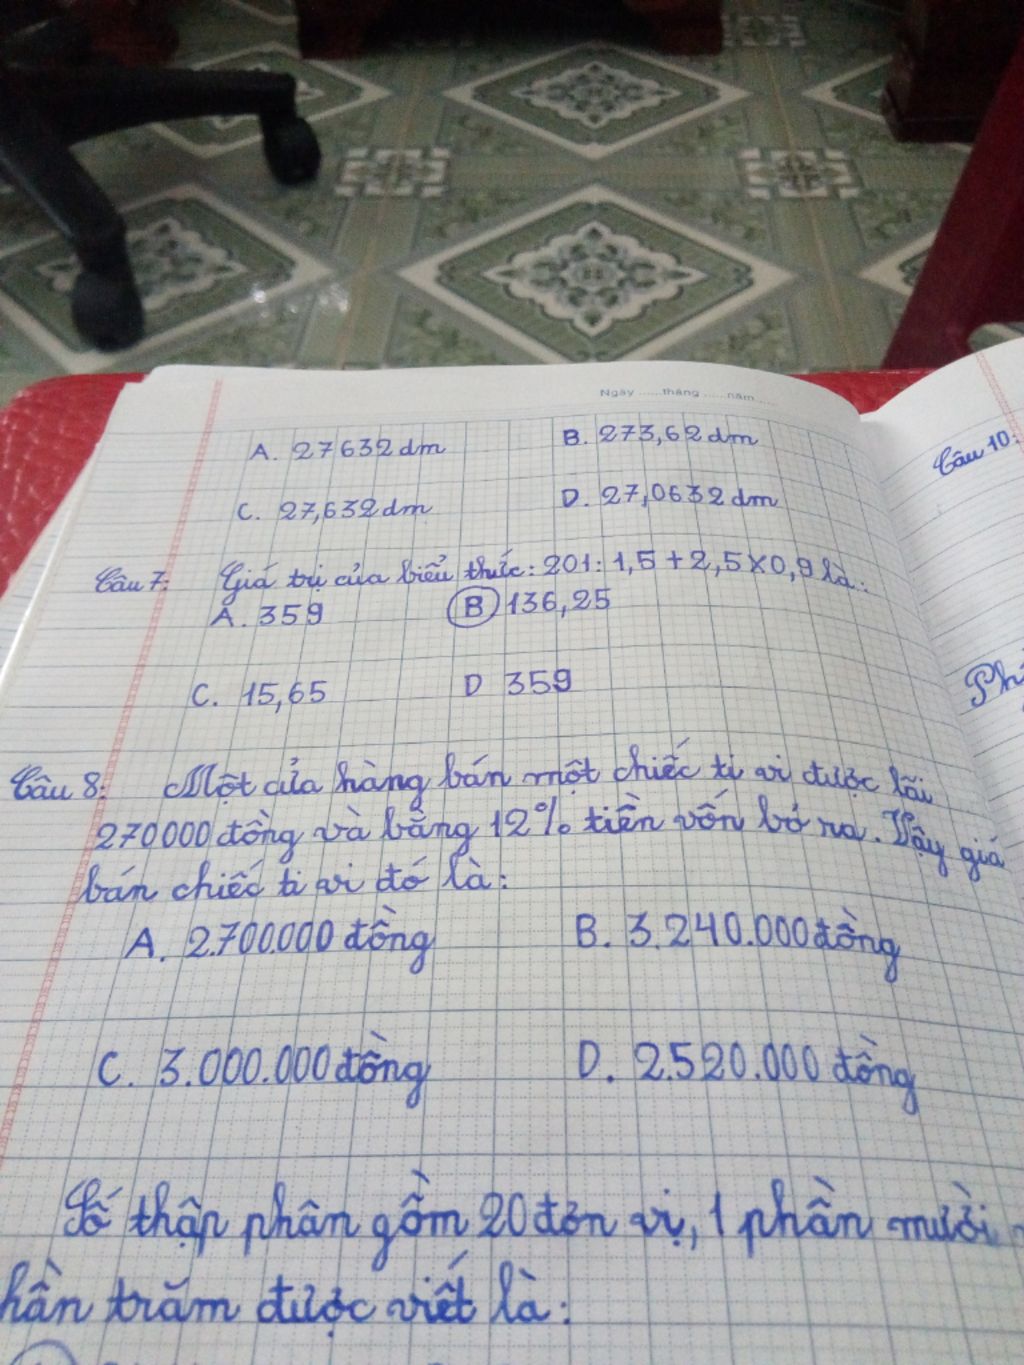 Ngày ...... tháng ...... năm ......
A. 27632 dm B. 273,62 dm
C. 27,632 dm D. 27,0632 dm
Câu 7: Giá trị của biểu thức: 201 : 1,5 + 2,5 x 0,9 là:
A. 359 B 136,25
C. 15,65 D 359
Câu 8: Một cửa hàng bán một chiếc ti vi được lãi
270000 đồng và bằng 12% tiền vốn bỏ ra. Vậy giá
bán chiếc ti vi đó là:
A. 2.700.000 đồng B. 3.240.000 đồng
C. 3.000.000 đồng D. 2.520.000 đồng
Số thập phân gồm 20 đơn vị, 1 phần mười
hần trăm được viết là:
Câu 10: